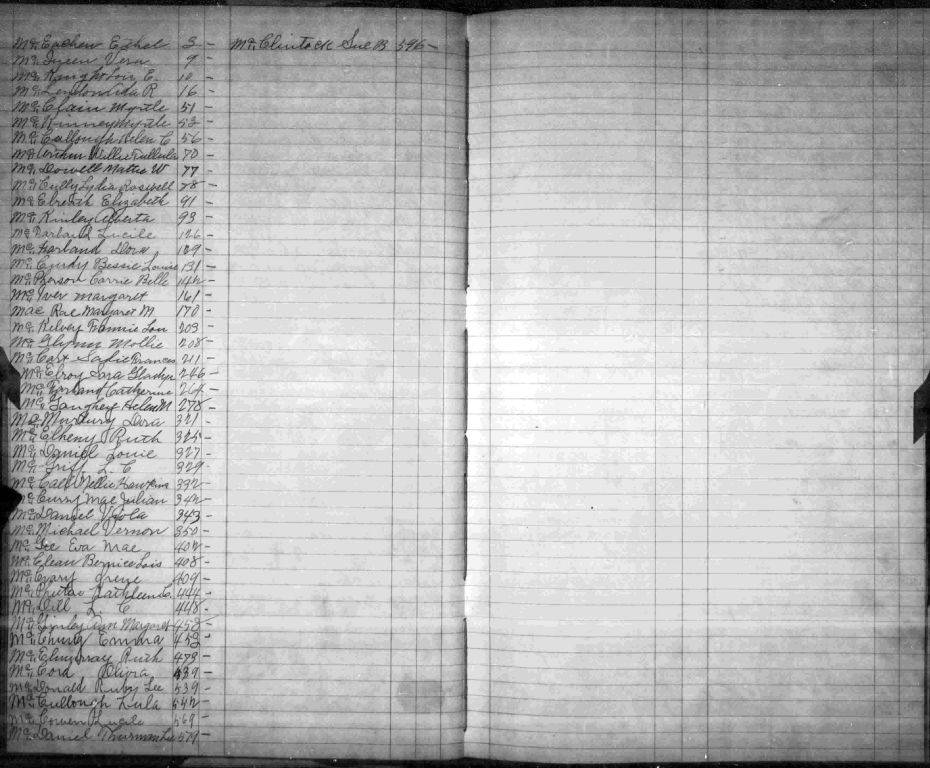 Mc Eachern Ethel 3 -
Mc Queen Vera 9 -
Mc Knight Lou E. 10 -
Mc Lendon Ida R 16 -
Mc Clain Myrtle 51 -
Mc Kinney Myrtle 53 -
Mc Callough Helen C 56 -
Mc Arthur Willie Tallulah 70 -
Mc Dowell Mattie W 77 -
Mc Cully Lydia Roswell 78 -
Mc Elreath Elizabeth 91 -
Mc Kinley Alberta 93 -
Mc Lucile 126 -
Mc Farland Dora 129 -
Mc Curdy Bessie Louise 131 -
Mc Pherson Carrie Belle 142 -
Mc Iver Margaret 161 -
Mac Rae Margaret M 170 -
Mc Kelvey Fannie Lou 203 -
Mc Glynn Mollie 208 -
Mc Cart Sadie Frances 211 -
Mc Elroy Sara Gladys 246 -
Mc Farland Catherine 264 -
Mc Gaughey Helen M 278 -
Mc Murtury Dora 321 -
Mc Elheny Ruth 325 -
Mc Daniel Louie 327 -
Mc Griff L. C 329 -
Mc Call Nellie Hawkins 332 -
Mc Curry Mae Julian 342 -
Mc Daniel Viola 343 -
Mc Michael Vernon 350 -
Mc Gee Eva Mae 402 -
Mc Clean Bernice Lois 408 -
Mc Crary Irene 409 -
Mc Kathleen 444 -
Mc Dill L. C 448 -
Mc Ginley Ann Margaret 458 -
Mc Emma 452 -
Mc Elmurray Ruth 473 -
Mc Cord Olivia 539 -
Mc Donald Ruby Lee 539 -
Mc Cullough Lula 542 -
Mc Cowen Lucile 569 -
Mc Daniel Thurman Lee 579 -
Mc Clintock Sue B 596 -